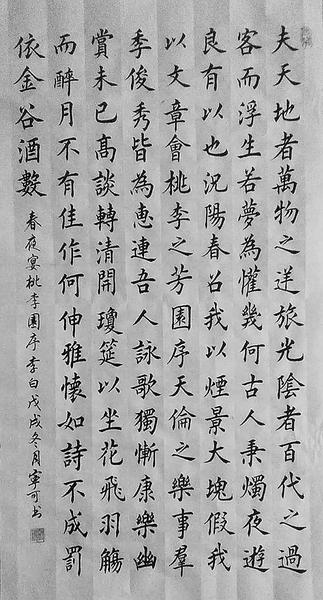 夫天地者萬物之逆旅光陰者百代之過
客而浮生若夢為懽幾何古人秉燭夜遊
良有以也況陽春召我以煙景大塊假我
以文章會桃李之芳園序天倫之樂事羣
季俊秀皆為恵連吾人詠歌獨慚康樂幽
賞未已髙談轉清開瓊筵以坐花飛羽觴
而醉月不有佳作何伸雅懷如詩不成罰
依金谷酒數
春夜宴桃李園序李白戊戌冬月寧可书